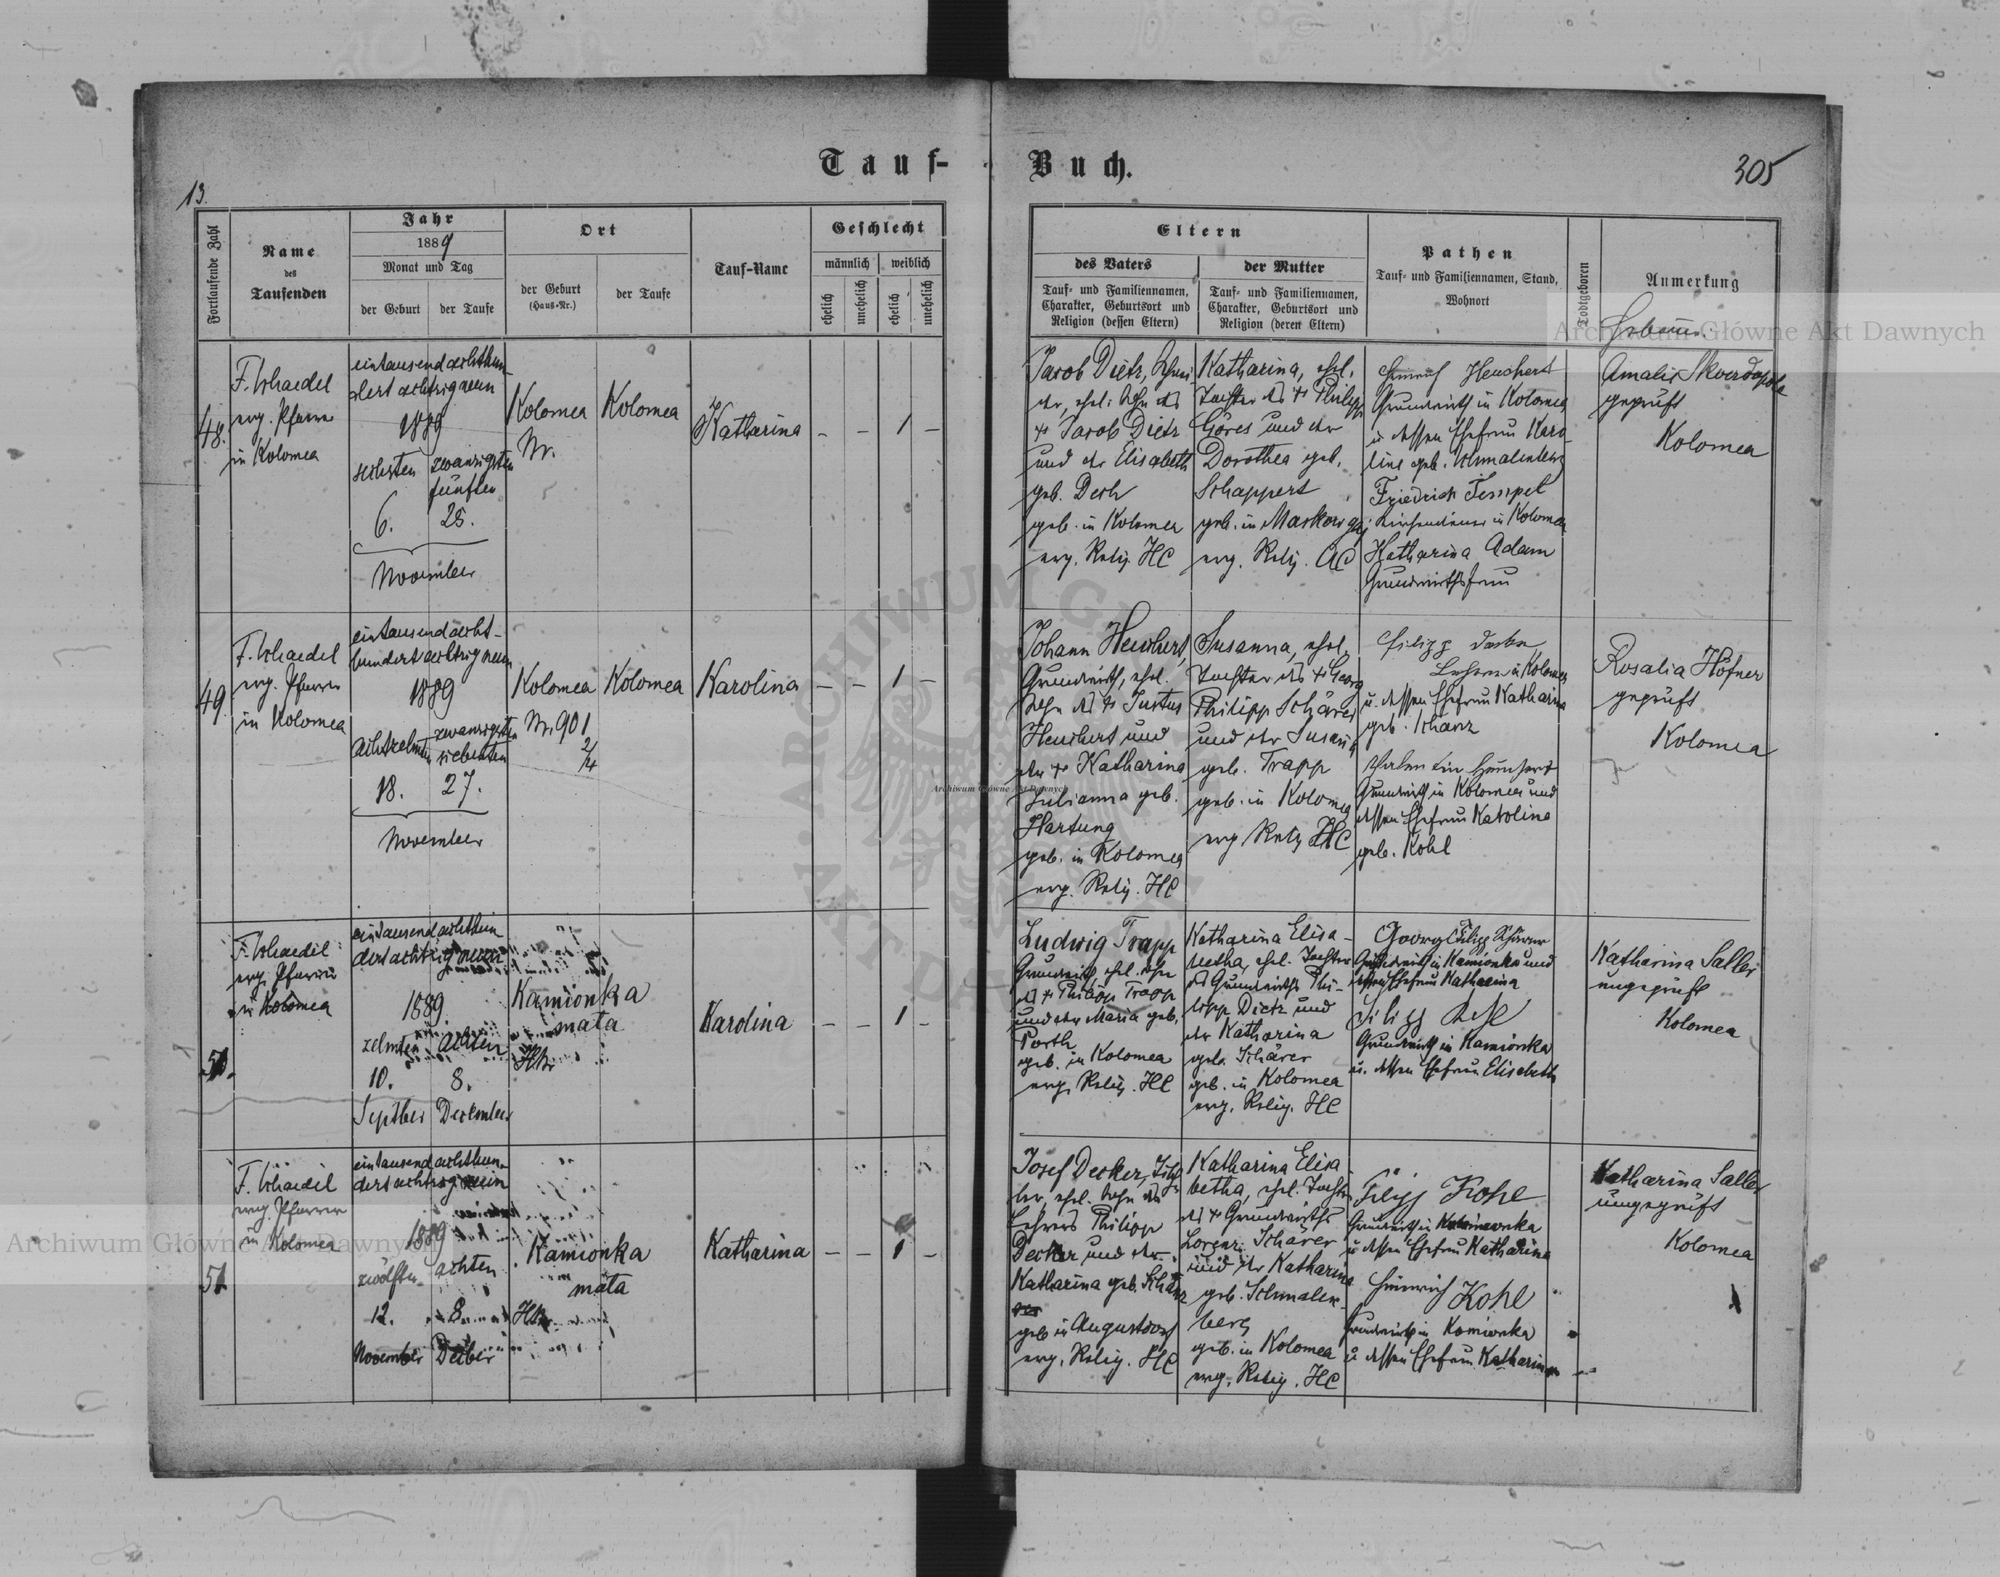 Tauf-Buch.
13.
305
Fortlaufende Zahl
Name
des
Taufenden
Jahr
1889
Monat und Tag
der Geburt
der Taufe
Ort
der Geburt
(Haus-Nr.)
der Taufe
Tauf-Name
Geschlecht
männlich
weiblich
ehelich
unehelich
ehelich
unehelich
Eltern
des Vaters
Tauf- und Familiennamen,
Charakter, Geburtsort und
Religion (dessen Eltern)
der Mutter
Tauf- und Familiennamen,
Charakter, Geburtsort und
Religion (deren Eltern)
Pathen
Tauf- und Familiennamen, Stand,
Wohnort
Todtgeboren
Anmerkung
Hebamme.
48.
evg. Pfarrer
in Kolomea
eintausendachthun-
dertachtzigneun
1889
sechsten
6.
zwanzigsten
fünften
25.
November
Kolomea
Nr.
Kolomea
Katharina
– – 1 –
Jacob Dietz,
der, ehel. Sohn des
† Jacob Dietz
und der Elisabeth
geb. Desch
geb. in Kolomea
evg. Relig. HC
Katharina, ehel.
Tochter des † Philipp
Göres und der
Dorothea geb.
Schappert
geb. in
evg. Relig. AC
Heinrich Heuchert
Grundwirth in Kolomea
u dessen Ehefrau Karo-
line geb. Schmalenberg
Friedrich Tempel
Kirchendiener in Kolomea
Katharina Adam
Grundwirthsfrau
Amalie
geprüft
Kolomea
49.
evg. Pfarrer
in Kolomea
eintausendacht-
hundertachtzigneun
1889
achtzehnten
18.
zwanzigsten
siebenten
27.
November
Kolomea
Nr. 901
2/4
Kolomea
Karolina
– – 1 –
Johann Heuchert,
Grundwirth, ehel.
Sohn des † Justus
Heuchert und
der † Katharina
Julianna geb.
Hartung
geb. in Kolomea
evg. Relig. HC
Susanna, ehel.
Tochter des † Georg
Philipp Schärer
und der Susanna
geb. Trapp
geb. in Kolomea
evg Relig HC
Filipp
Lehrer in Kolomea
u. dessen Ehefrau Katharina
geb. Scharz
Valentin
Grundwirth in Kolomea und
dessen Ehefrau Karolina
geb. Kohl
Rosalia Höfner
geprüft
Kolomea
50.
evg. Pfarrer
in Kolomea
eintausendachthun
dertachtzigneun
1889
zehnten
10.
Septber
achten
8.
December
Kamionka
mała
Karolina
– – 1 –
Ludwig Trapp
Grundwirth, ehel. Sohn
des † Philipp Trapp
und der Maria geb.
Porth
geb. in Kolomea
evg. Relig. HC
Katharina Elisa-
betha, ehel. Tochter
des Grundwirths Phi-
lipp Dietz und
der Katharina
geb. Schärer
geb. in Kolomea
evg. Relig. HC
Georg Filipp Schärer
Grundwirth in Kamionka und
dessen Ehefrau Katharina
Filipp
Grundwirth in Kamionka
u. dessen Ehefrau Elisabeth
Katharina Saller
ungeprüft
Kolomea
51.
evg. Pfarrer
in Kolomea
eintausendachthun-
dertachtzigneun
1889
zwölften
12.
November
achten
8.
Decber
Kamionka
mała
Katharina
– – 1 –
Josef Decker,
ler, ehel. Sohn des
Lehrers Philipp
Decker und der
Katharina geb.
geb in Augustdorf
evg. Relig. HC
Katharina Elisa
betha, ehel. Tochter
des † Grundwirths
Lorenz Schärer
und der Katharina
geb. Schmalen-
berg
geb. in Kolomea
evg. Relig. HC
Filipp Kohl
Grundwirth in Kamionka
u dessen Ehefrau Katharina
Heinrich Kohl
Grundwirth in Kamionka
u dessen Ehefrau Katharina
Katharina Saller
ungeprüft
Kolomea
Archiwum Główne Akt Dawnych
Archiwum Główne Akt Dawnych
Archiwum Główne Akt Dawnych